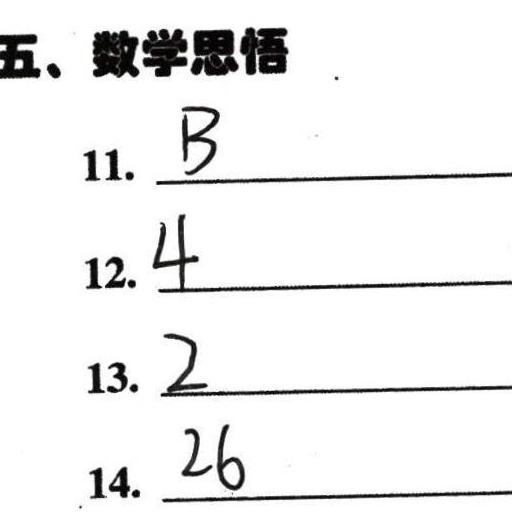 五、数学思悟
11. B
12. 4
13. 2
14. 26